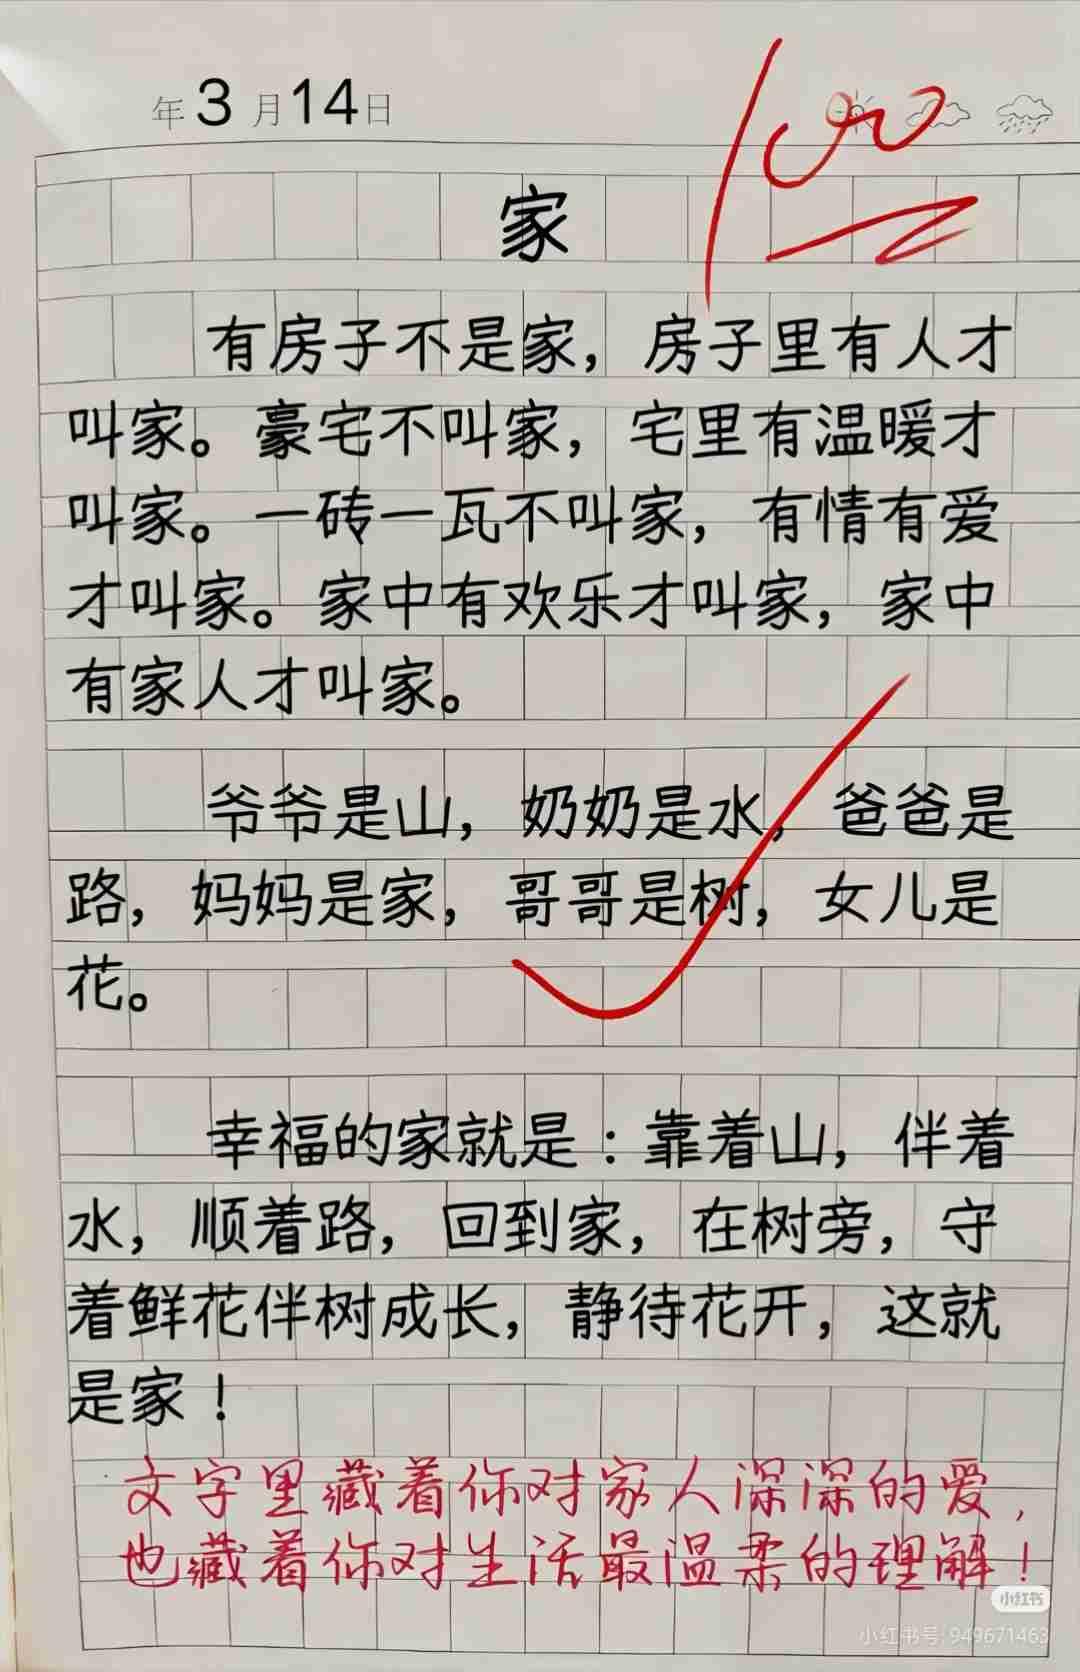 年3月14日
100
家
有房子不是家，房子里有人才
叫家。豪宅不叫家，宅里有温暖才
叫家。一砖一瓦不叫家，有情有爱
才叫家。家中有欢乐才叫家，家中
有家人才叫家。
爷爷是山，奶奶是水，爸爸是
路，妈妈是家，哥哥是树，女儿是
花。
幸福的家就是：靠着山，伴着
水，顺着路，回到家，在树旁，守
着鲜花伴树成长，静待花开，这就
是家！
文字里藏着你对家人深深的爱，
也藏着你对生活最温柔的理解！
小红书
小红书号:949671463